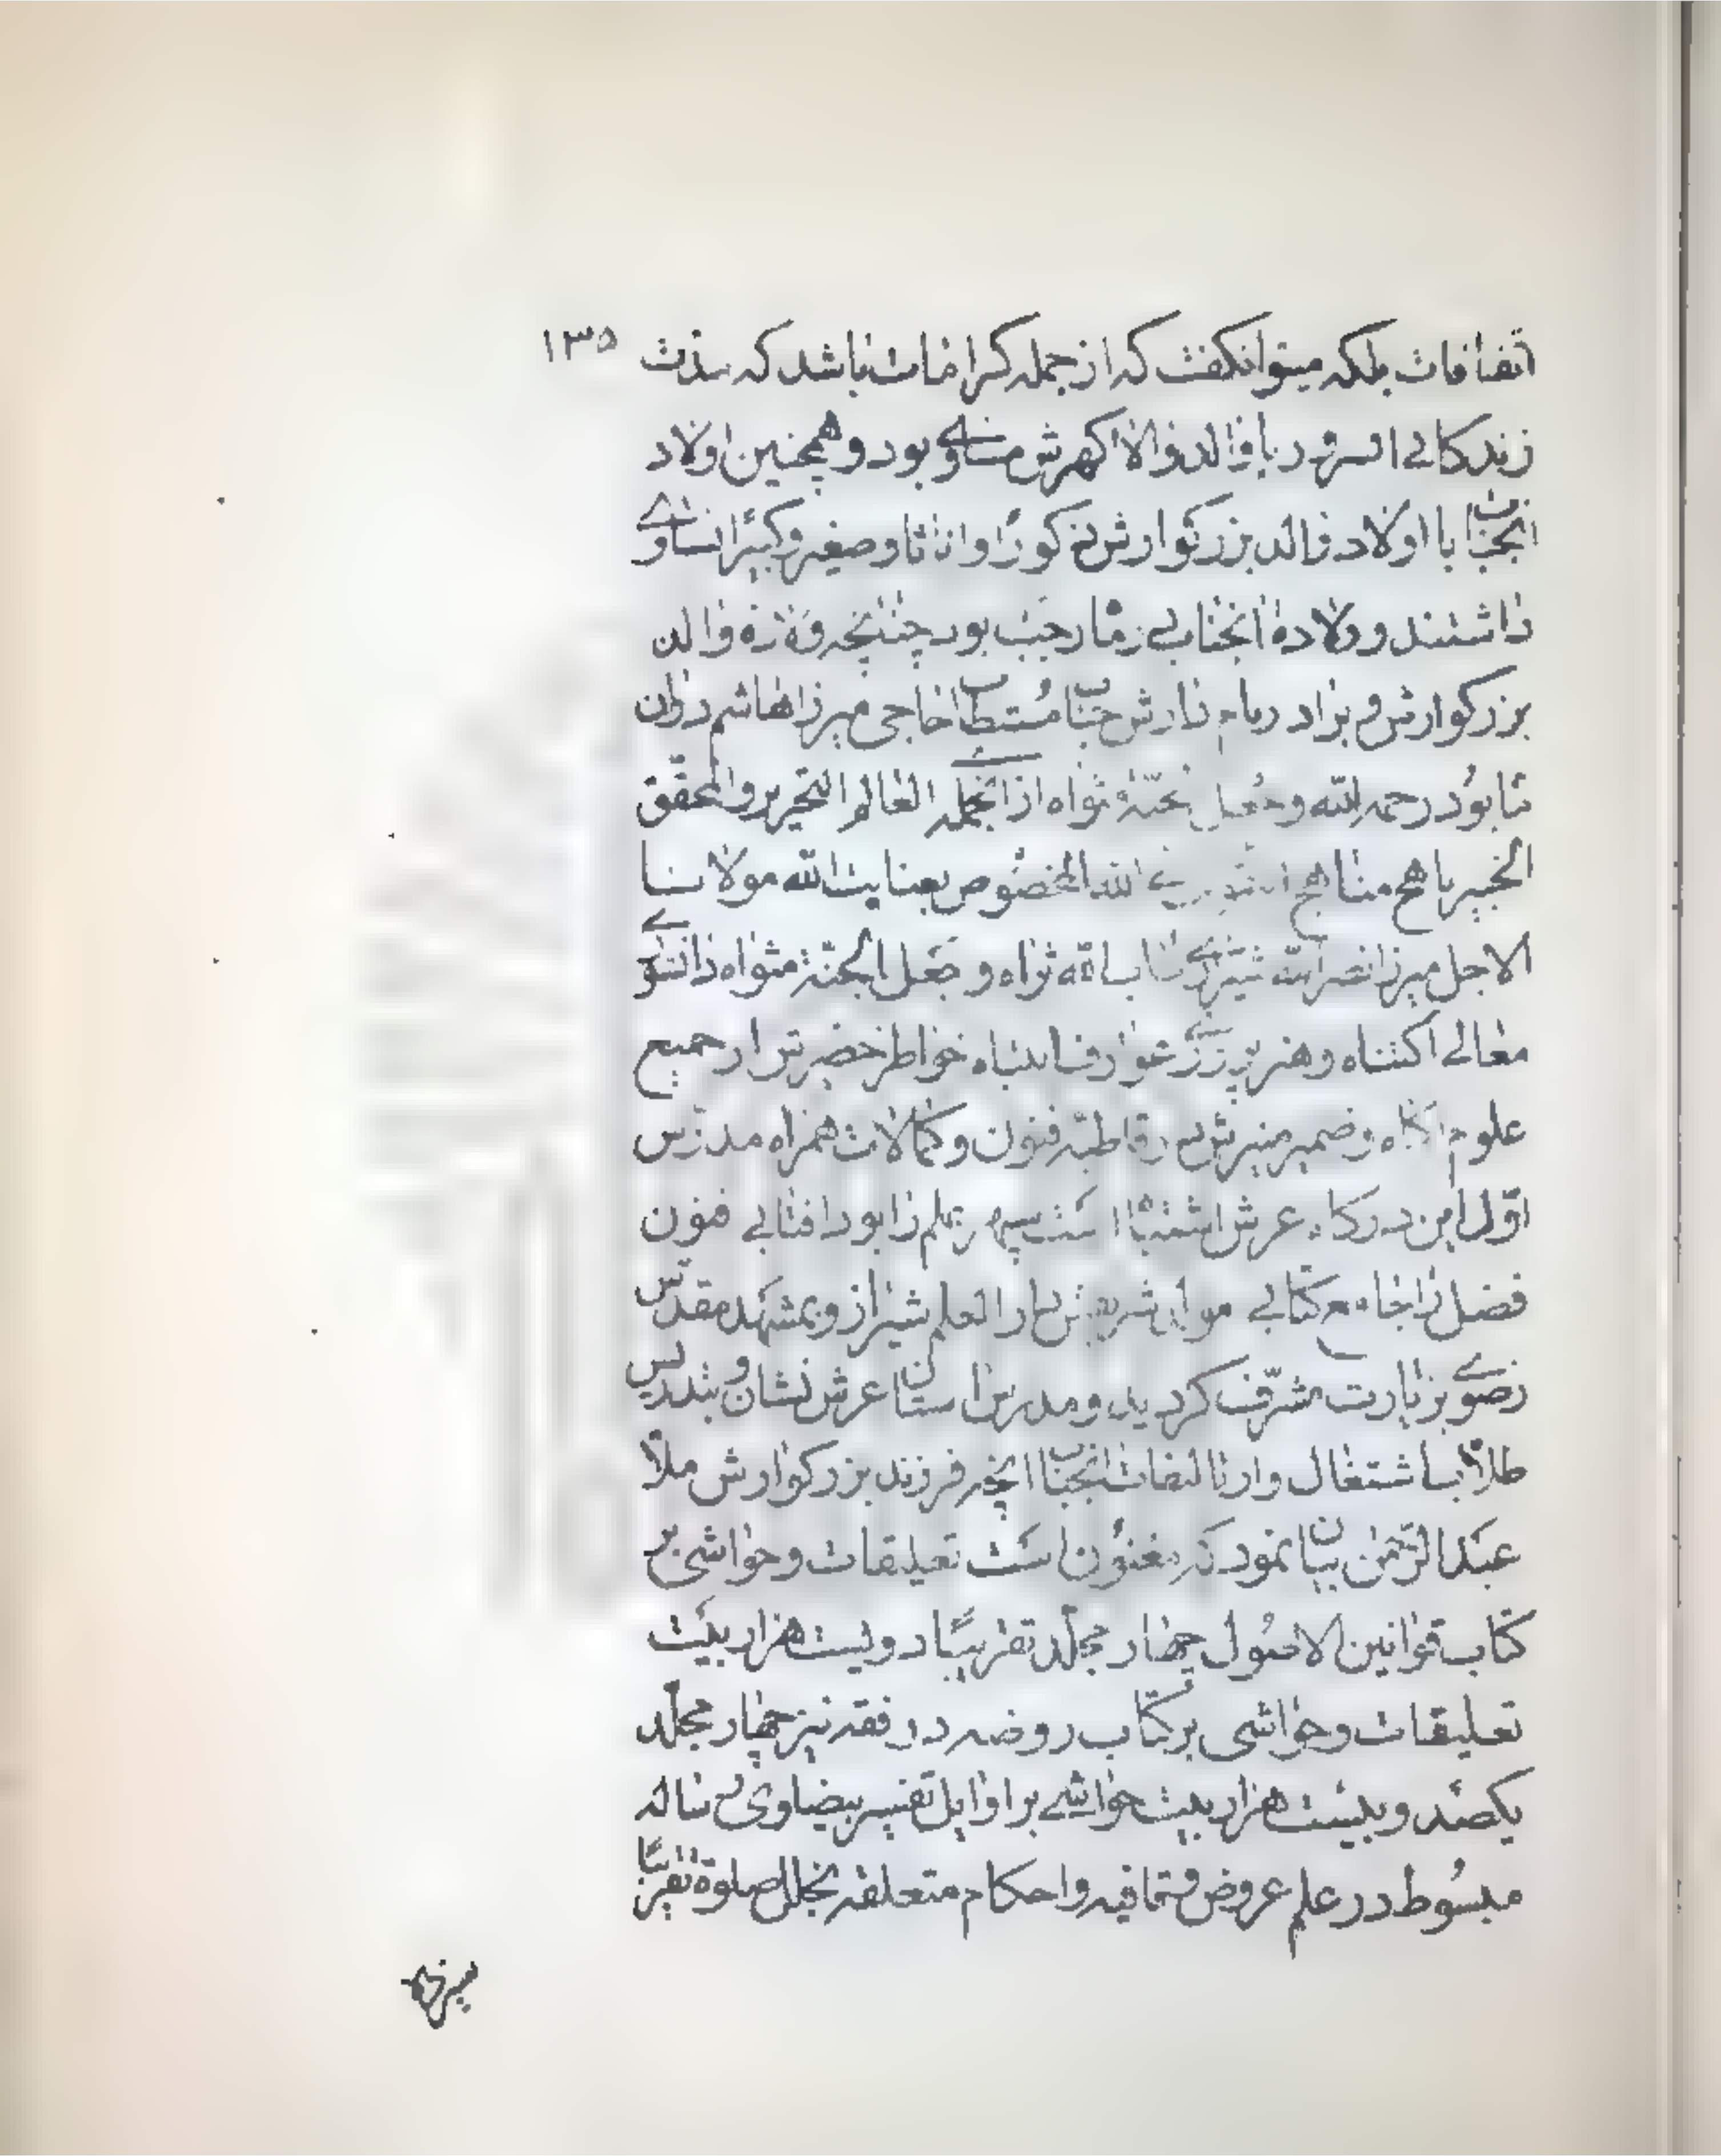 ۱۳۵
اتفاقات بلکه میتوانکفت که از جمله کرامات باشد که مدت
زندکانی انسرور با والد والا کهرش مساوی بود و همچنین اولاد
انجناب با اولاد والد بزرکوارش ذکورا و اناثا و صغیرا و کبیرا تساوی
داشتند و ولادة انجناب رجب بود چنانچه والد
بزرکوارش جناب مستطاب حاجی میرزا هاشم دران
رحمه الله و جعل جنة مثواه ازانجمله العالم النحریر والمحقق
الخبیر ناهج مناهج الله المخصوص بعنایت الله مولانا
الاجل میرزا نصرالله شیرازی طاب الله ثراه و جعل الجنة مثواه دانشوری
معالی اکتناه و هنرپروری عوارف انتباه خواطر خضیرش از جمیع
علوم اکاه و ضمیر منیرش بر قاطبه فنون و کمالات همراه مدرس
اول این درکاه عرش اشتباه است سپهر علم را بود افتابی فنون
فضل را جامع کتابی مولد شریفش دارالعلم شیراز و بمشهد مقدس
رضوی بزیارت مشرف کردید و مدرس استان عرش نشان و بتدریس
طلاب اشتغال و از تالیفات انجناب انچه فرزند بزرکوارش ملا
عبدالرحمن بیان نمود که معنون است تعلیقات و حواشی بر
کتاب قوانین الاصول چهار مجلد تقریبا دویست هزار بیت
تعلیقات و حواشی بر کتاب روضه در فقه نیز چهار مجلد
یکصد و بیست هزار بیت حواشی بر اوایل تفسیر بیضاوی رساله
مبسوط در علم عروض و قافیه و احکام متعلقه بخلل صلوة تقریبا